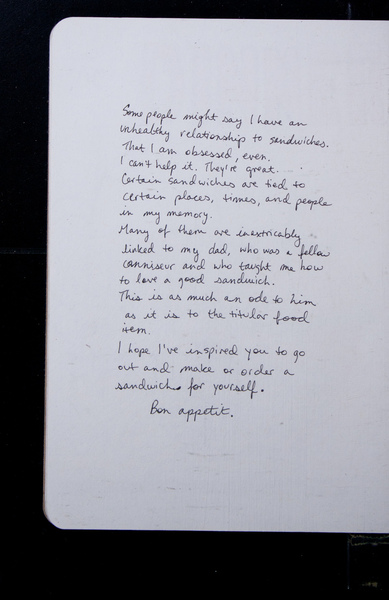 Some people might say I have an
unhealthy relationship to sandwiches.
That I am obsessed, even.
I can't help it. They're great.
Certain sandwiches are tied to
certain places, times, and people
in my memory.
Many of them are inextricably
linked to my dad, who was a fellow
conniseur and who taught me how
to love a good sandwich.
This is as much an ode to him
as it is to the titular food
item.
I hope I've inspired you to go
out and make or order a
sandwich for yourself.
Bon appetit.